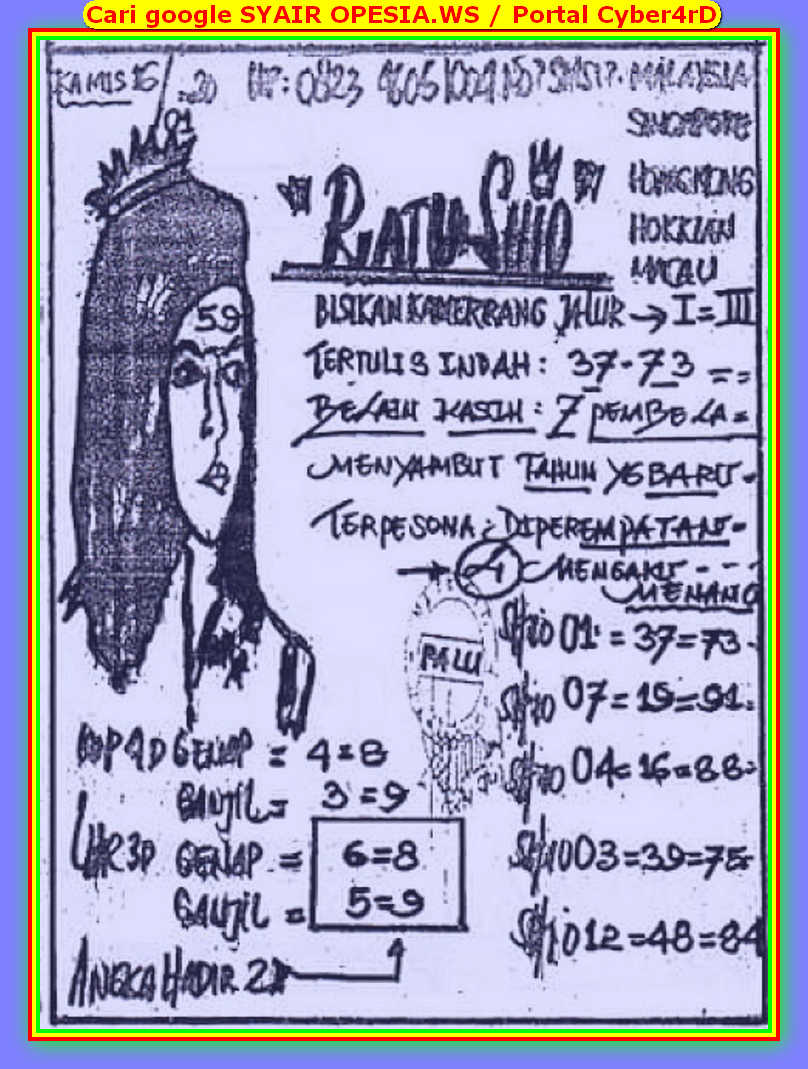 Cari google SYAIR OPESIA.WS / Portal Cyber4rD
KAMIS 16/
=20
HP: 0823
MALAYSIA
SINGAPORE
HONGKONG
HOKKIAN
MACAU
"RATU SHIO"
59
BISIKAN KAMERRANG JALUR → I = III
TERTULIS INDAH: 37-73 = =
BELAIN KASIH: 7 PEMBELA =
MENYAMBUT TAHUN YG BARU-
TERPESONA: DIPEREMPATAN-
→ 4 MENGAKU - - -
MENANG
PALU
SHIO 01 = 37=73
SHIO 07=19=91
SHIO 04=16=88
SHIO 03=39=75
SHIO 12=48=84
KOP 4D GENAP = 4=8
GANJIL = 3=9
EKR 3D GENAP = 6=8
GANJIL = 5=9
ANGKA HADIR 2D